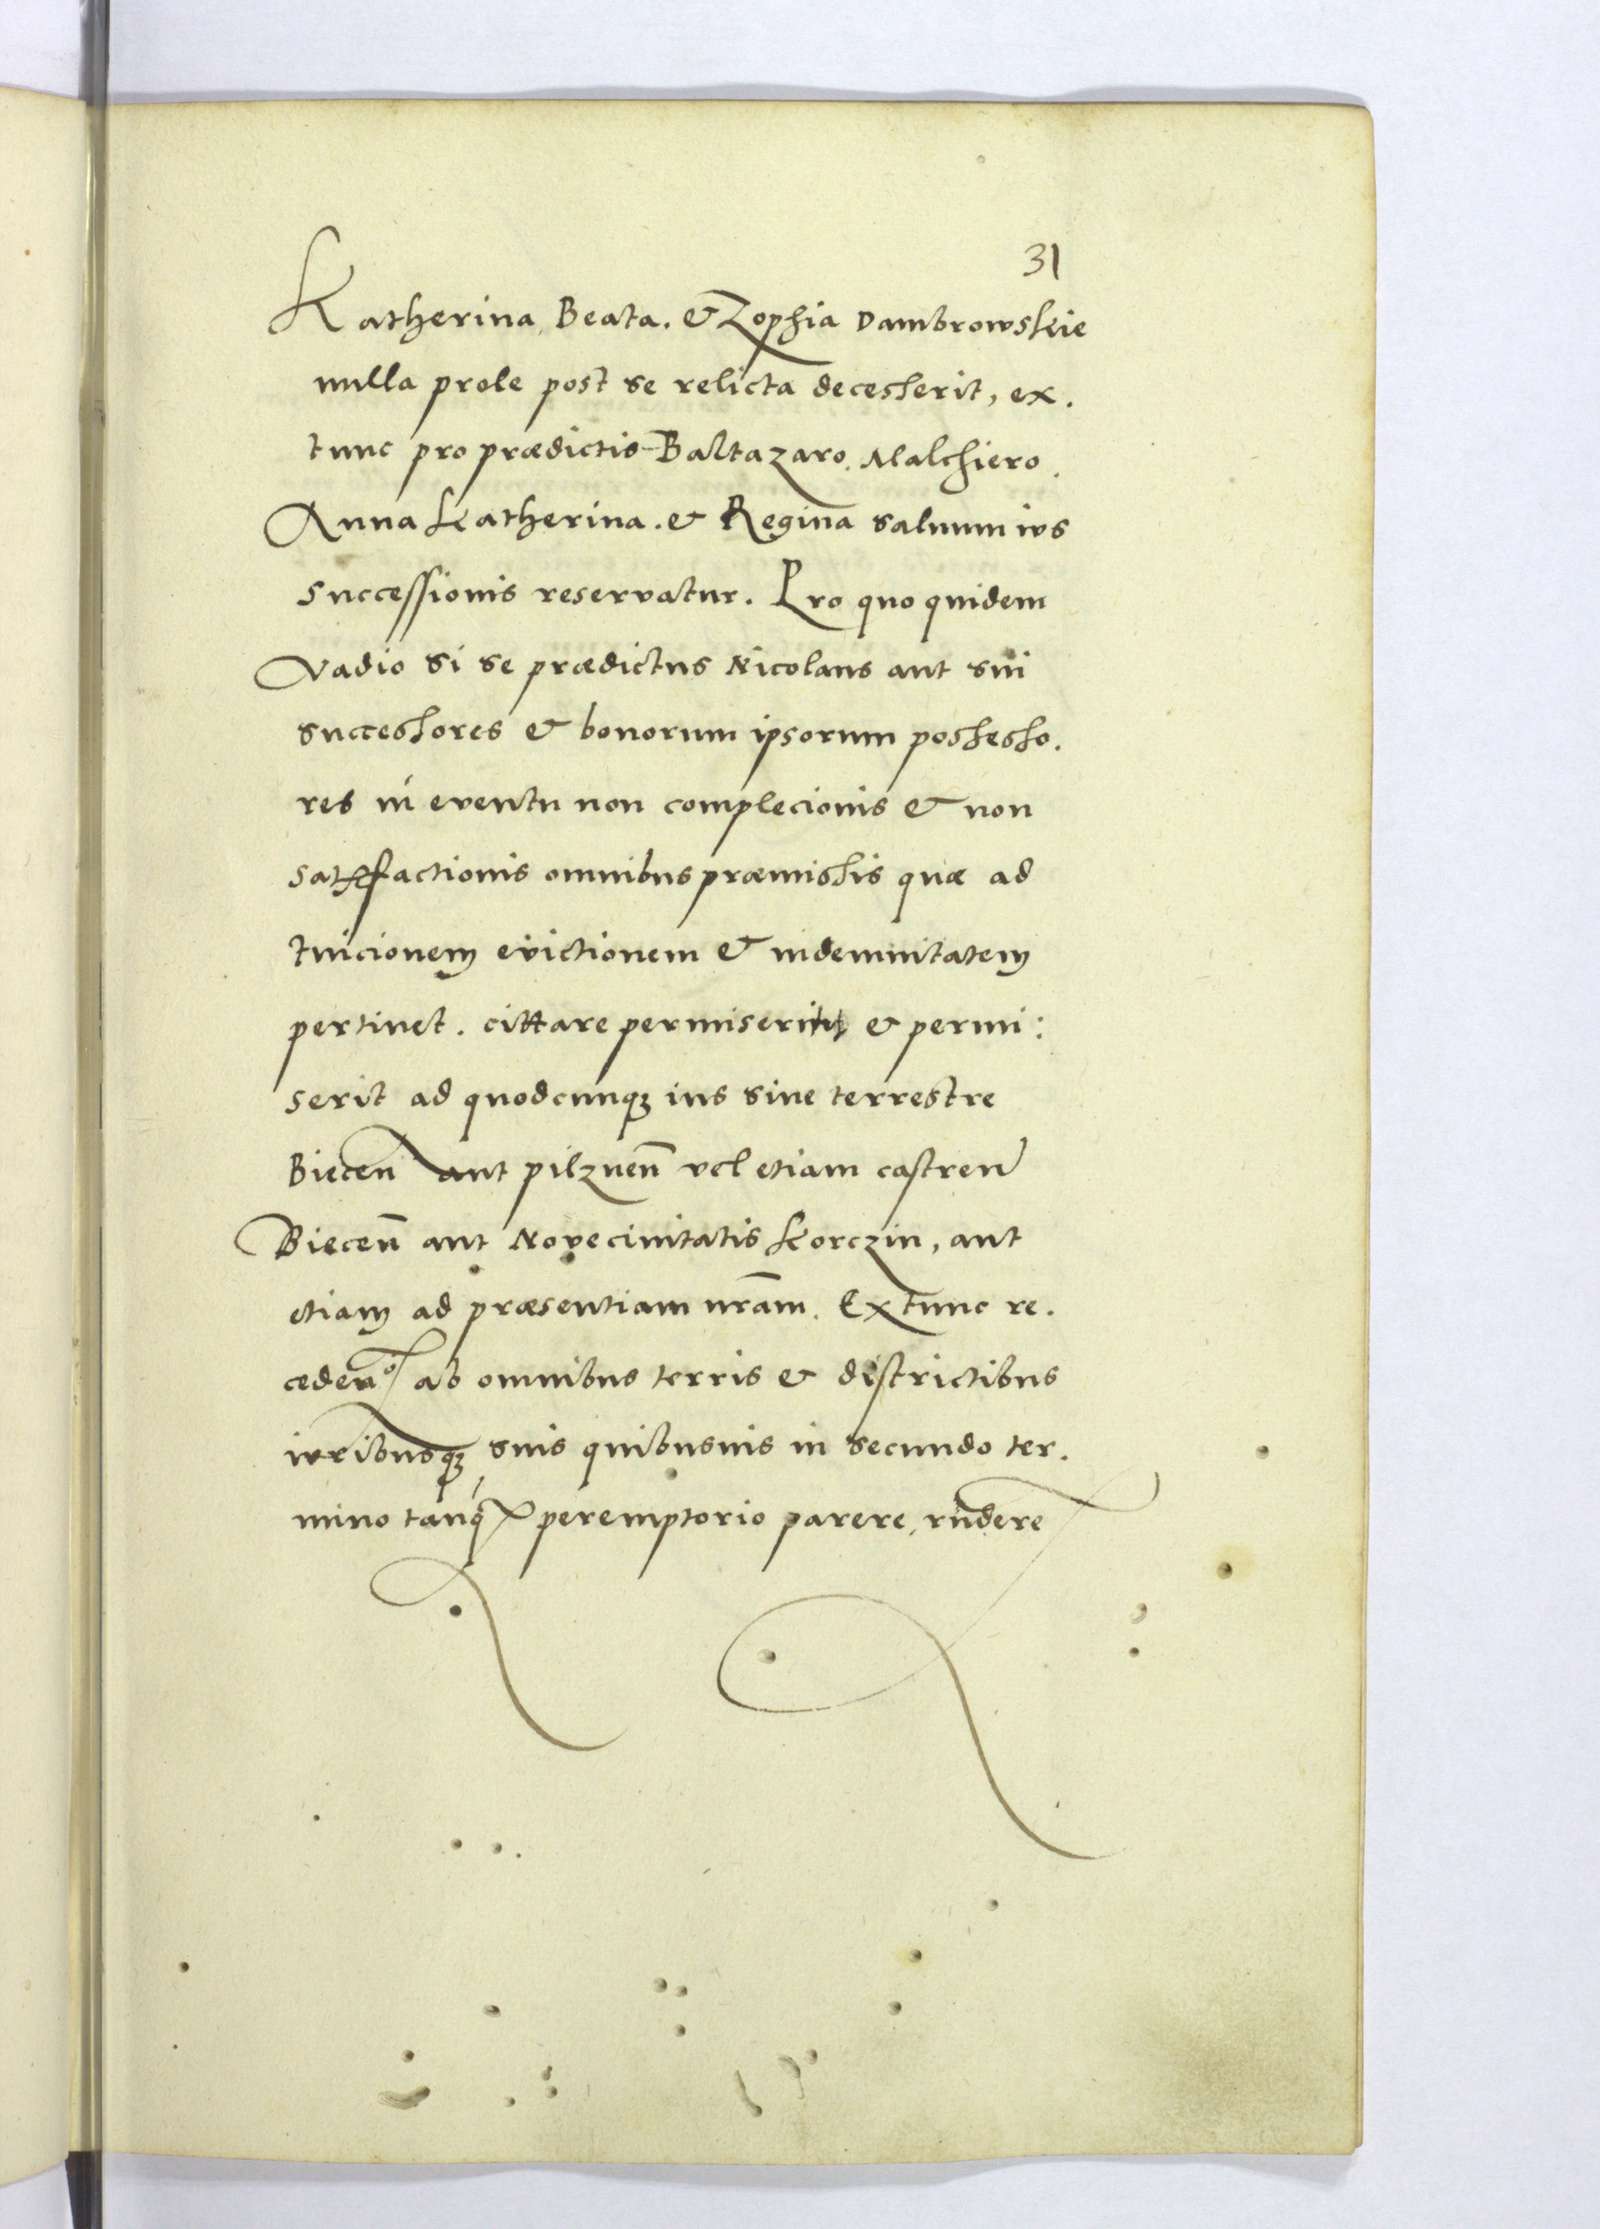 31
Katherina, Beata. & Zophia Dambrowskie
nulla prole post se relicta decesserit, ex.
tunc pro prædictis Baltazaro. Malchiero.
Anna Katherina. & Regina saluum ius
successionis reservatur. Pro quo quidem
Vadio si se prædictus Nicolaus aut sui
successores & bonorum ipsorum possesso.
res in eventu non complecionis & non
satisfactionis omnibus præmissis quæ ad
tuicionem evictionem & indemnitatem
pertinet. cittare permiserint & permi:
serit ad quodcunq₃ ius siue terrestre
Biecen̄ aut pilznen̄ vel etiam castren̄
Biecen̄ aut Nove ciuitatis Korczin, aut
etiam ad præsentiam nr̄am. Ex tunc re.
cedendo ab omnibus terris & districtibus
iuribusq₃ suis quibusuis in secundo ter.
mino tanq̃ peremptorio parere, rn̄dere